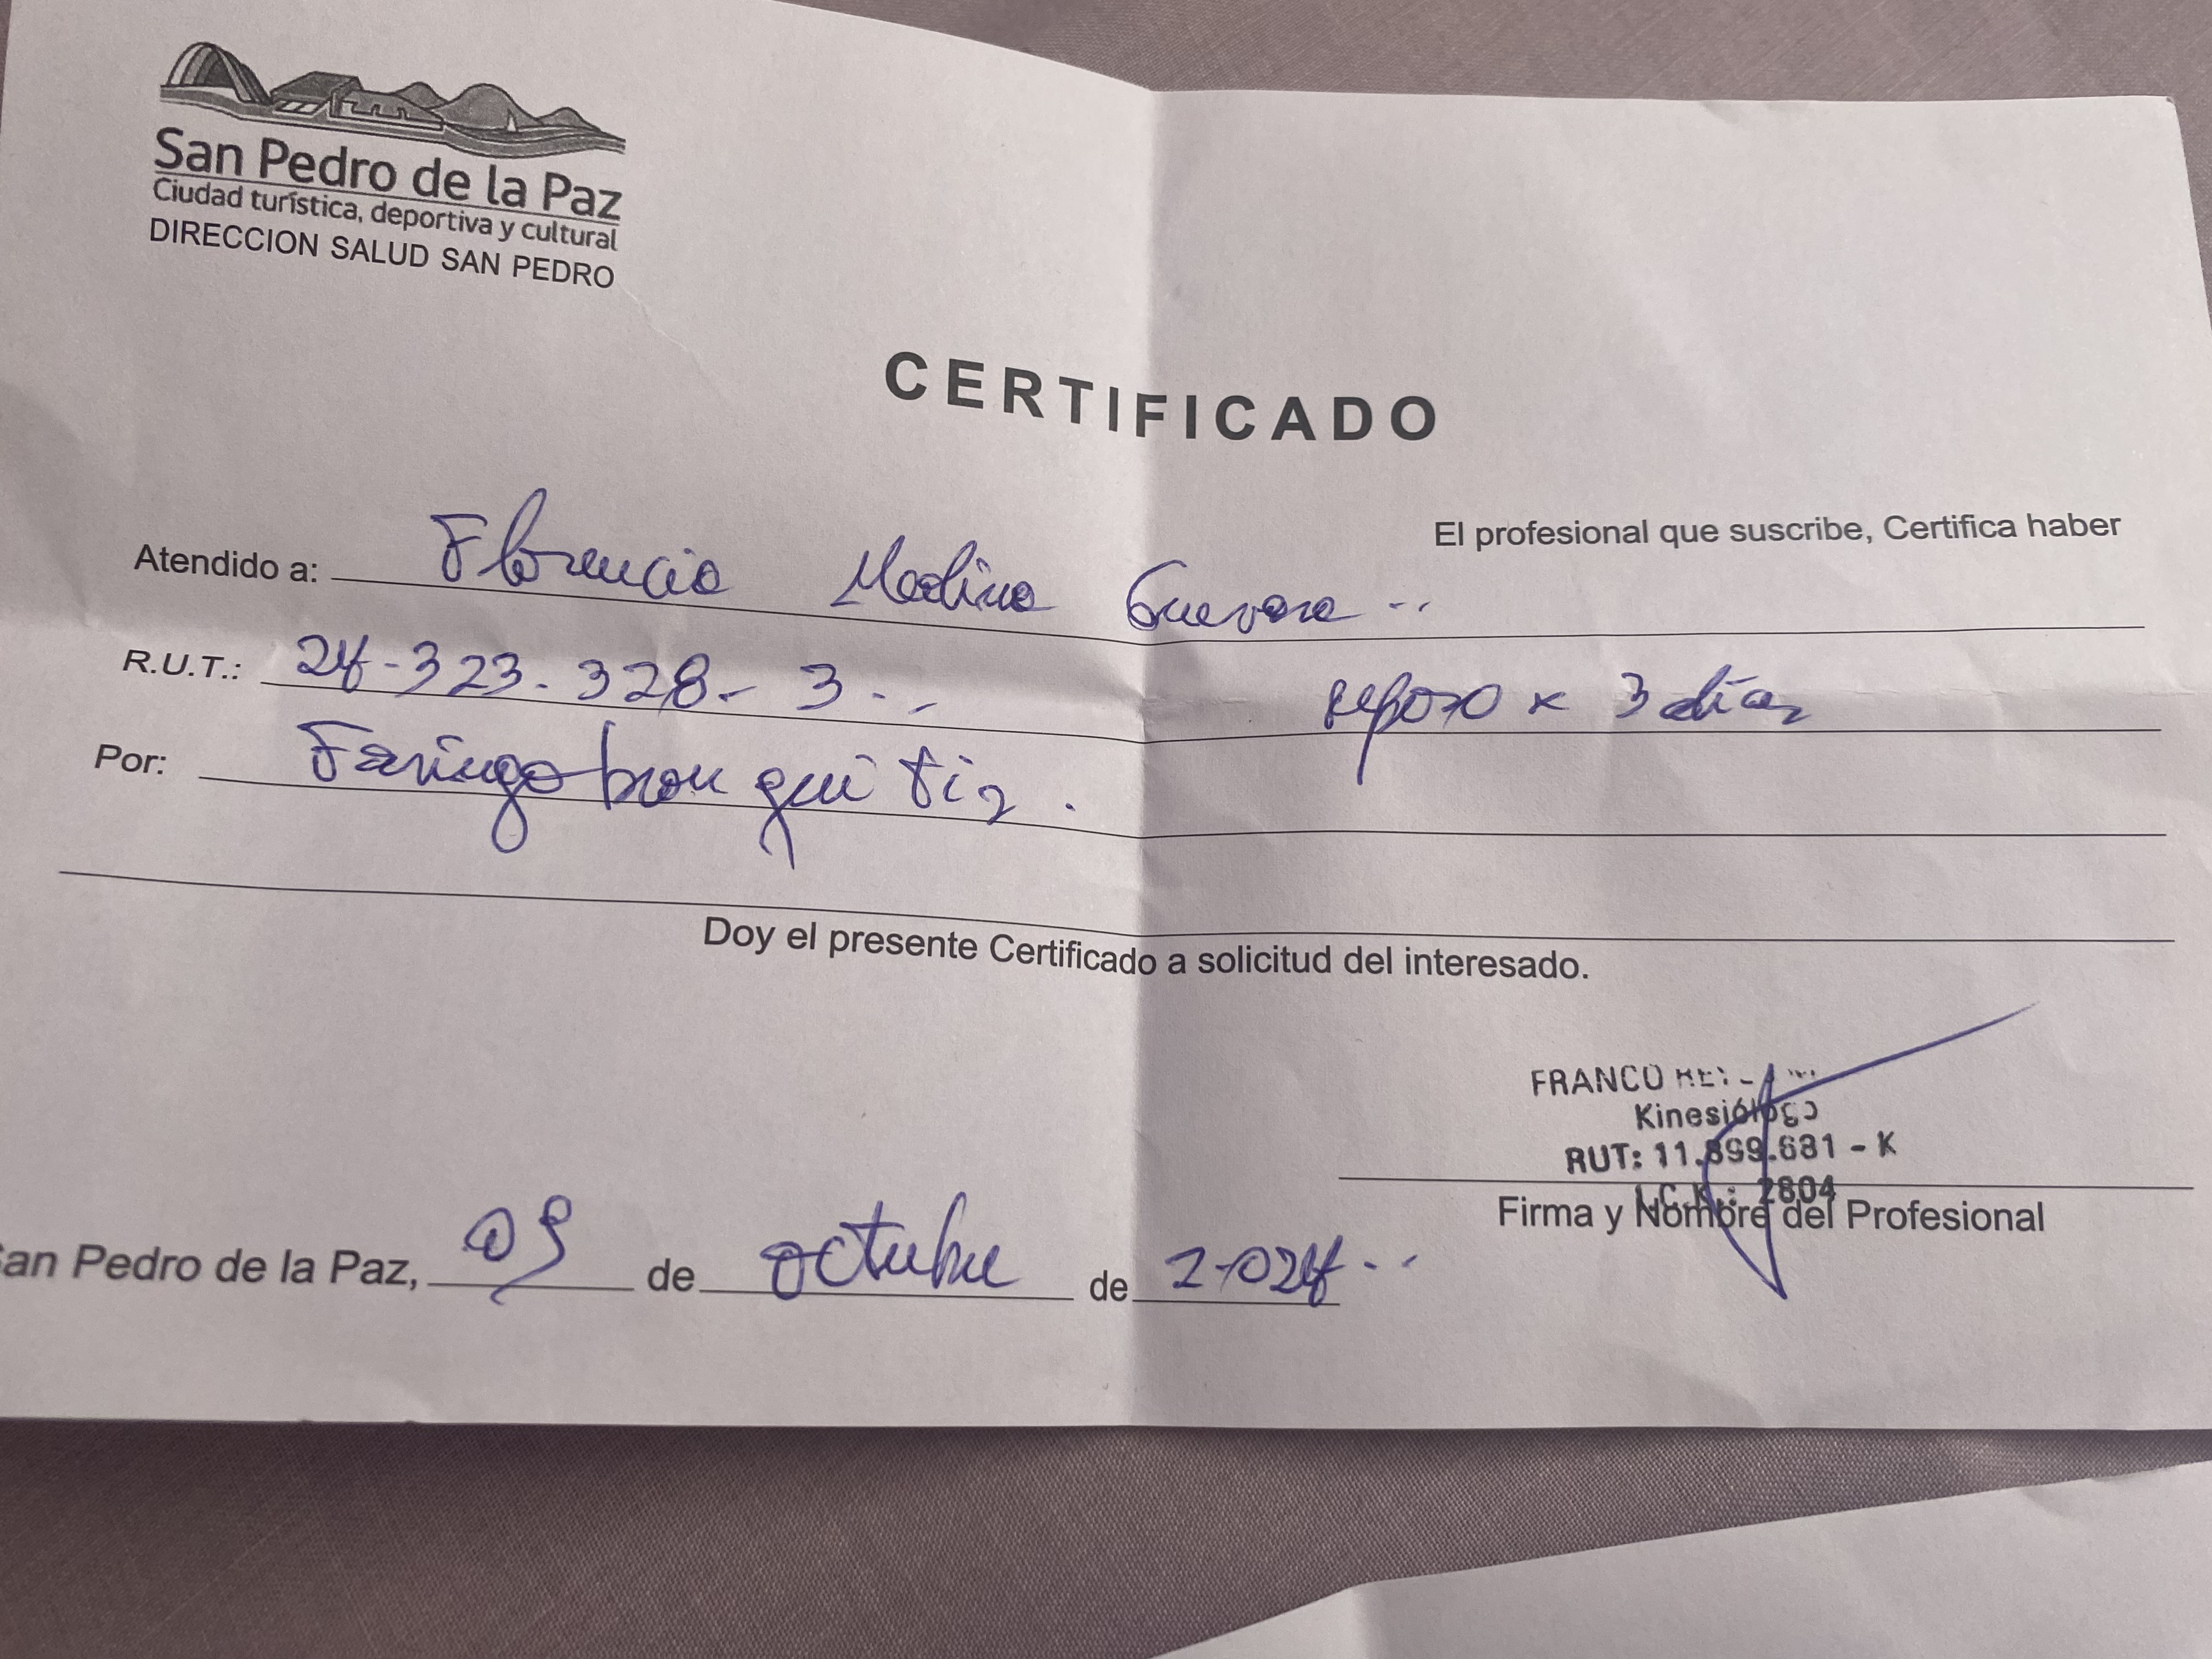 San Pedro de la Paz
Ciudad turística, deportiva y cultural
DIRECCION SALUD SAN PEDRO
CERTIFICADO
El profesional que suscribe, Certifica haber
Atendido a: Florencia Medina Guevara ..
R.U.T.: 24-323.328.- 3.- reposo x 3 días
Por: Faringobronquitis.
Doy el presente Certificado a solicitud del interesado.
FRANCO
Kinesiólogo
RUT: 11.899.681 - K
I.C.K.: 2804
Firma y Nombre del Profesional
an Pedro de la Paz, 09 de octubre de 2024..